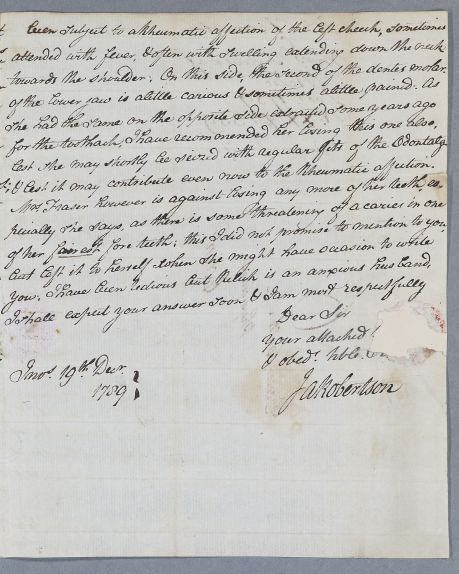 been subject to a Rheumatic affection of the left cheek, sometimes
attended with fever, & often with swelling extending down the neck
towards the shoulder. On this side, the second of the dentes molar.
of the lower jaw is a little carious & sometimes a little pained. As
she had the same on the opposite side extracted some years ago
for the toothach, I have recommended her losing this one also,
lest she may shortly be seized with regular fits of the Odontalg
& lest it may contribute even now to the Rheumatic affection.
Mrs. Fraser however is against losing any more of her teeth, es
pecially she says, as there is some threatening of a caries in one
of her fairest fore teeth; this I did not promise to mention to you,
but left it to herself when she might have occasion to write
you. I have been tedious but Relich is an anxious husband,
I shall expect your answer soon & I am most respectfully
Dear Sir
your attached
& obedt. hble.
JaRobertson
Invs. 19th Decr.
1789